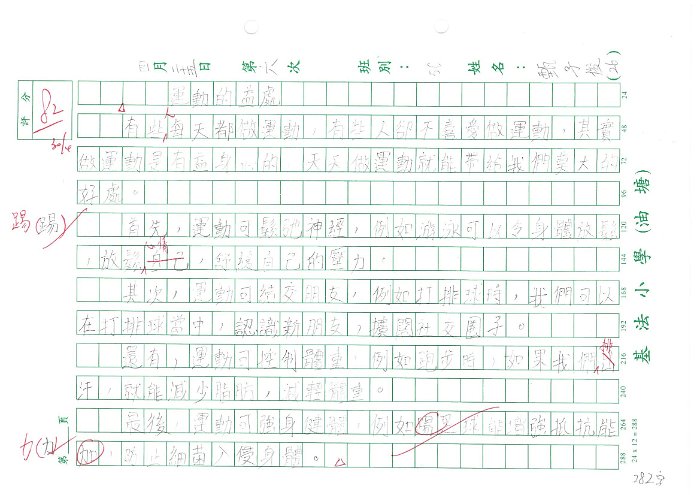 四月二十五日 第六次 班別： 姓名：
運動的益處
有些人每天都做運動，有些人卻不喜愛做運動，其實
做運動是有 身 的 天天做運動就能帶給我們 大的
好處。
首先，運動可鬆弛神經，例如游泳可以 身體放鬆
，放鬆心情， 自己的壓力。
其次，運動可結交朋友，例如打排球時，我們可以
在打排球當中，認識新朋友，擴闊社交圈子。
還有，運動可控制體重，例如跑步時，如果我們排
汗，就能減少脂肪，減輕體重。
最後，運動可強身健體，例如踢 球能 強抵抗能
力，防止細菌入侵身體。
評分
82
30/4
踢(踢)
力(力)
基法小學(油塘)
第 頁
24
48
72
96
120
144
168
192
216
240
264
288
24 x 12 = 288
282字